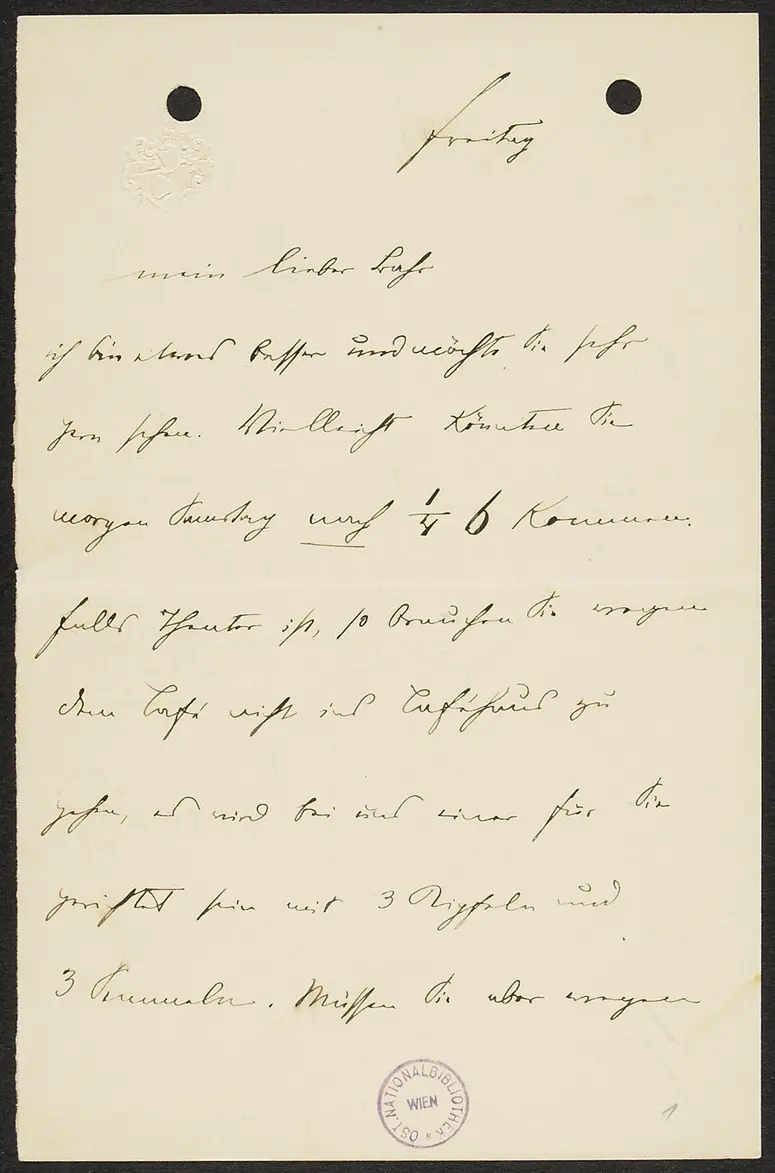 Freitag
mein lieber Bahr
ich bin etwas besser und möchte Sie sehr
gern sehen. Vielleicht könnten Sie
morgen Samstag nach 1/4 6 kommen.
falls Theater ist, so brauchen Sie wegen
dem Café nicht ins Caféhaus zu
gehen, es wird bei uns einer für Sie
gerichtet sein mit 3 Kipfeln und
3 Semmeln. Müssen Sie aber wegen
ÖST. NATIONALBIBLIOTHEK * WIEN
1